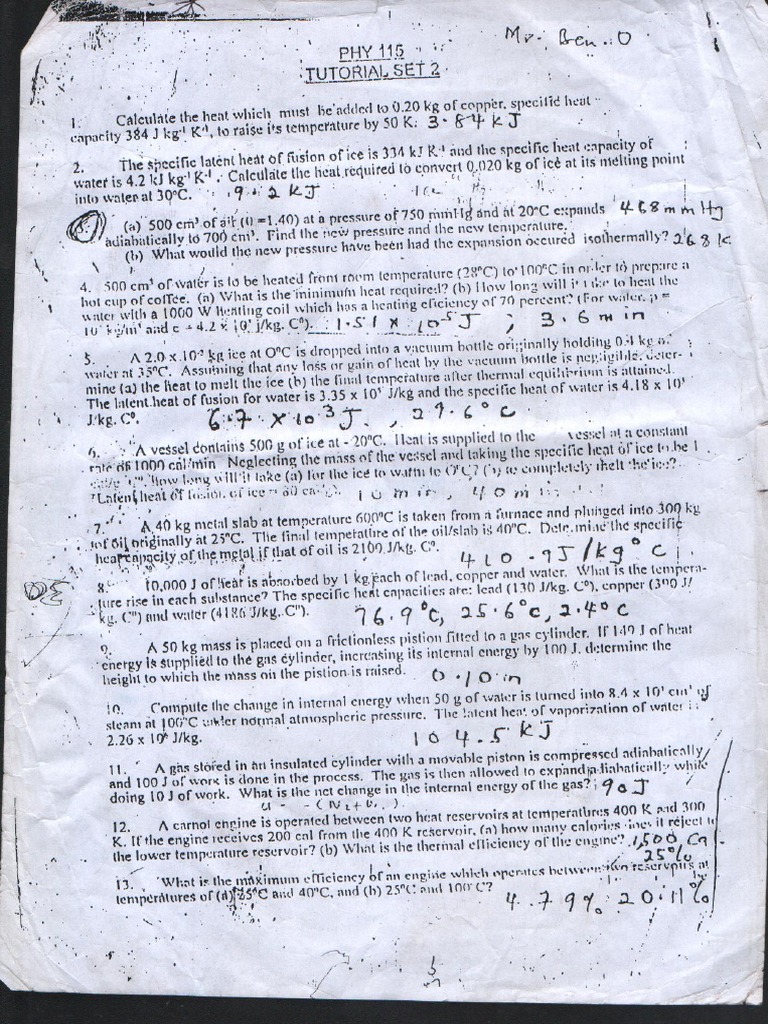 Mr. Ben. O
PHY 115
TUTORIAL SET 2
1. Calculate the heat which must be added to 0.20 kg of copper, specific heat
capacity 384 J kg⁻¹ K⁻¹, to raise its temperature by 50 K. 3.84 kJ
2. The specific latent heat of fusion of ice is 334 kJ K⁻¹ and the specific heat capacity of
water is 4.2 kJ kg⁻¹ K⁻¹. Calculate the heat required to convert 0.020 kg of ice at its melting point
into water at 30°C. 9.2 kJ
3. (a) 500 cm³ of air ( =1.40) at a pressure of 750 mmHg and at 20°C expands 468 mm Hg
adiabatically to 700 cm³. Find the new pressure and the new temperature.
(b) What would the new pressure have been had the expansion occured isothermally? 268 K
4. 500 cm³ of water is to be heated from room temperature (28°C) to 100°C in order to prepare a
hot cup of coffee. (a) What is the minimum heat required? (b) How long will it take to heat the
water with a 1000 W heating coil which has a heating eficiency of 70 percent? (For water, ρ =
10³ kg/m³ and c = 4.2 x 10³ j/kg. C°). 1.51 x 10⁵ J ; 3.6 min
5. A 2.0 x 10⁻² kg ice at O°C is dropped into a vacuum bottle originally holding 0.4 kg of
water at 35°C. Assuming that any loss or gain of heat by the vacuum bottle is negligible, deter-
mine (a) the heat to melt the ice (b) the final temperature after thermal equilibrium is attained.
The latent heat of fusion for water is 3.35 x 10⁵ J/kg and the specific heat of water is 4.18 x 10³
J/kg. C°. 6.7 x 10³ J. , 29.6°C
6. A vessel contains 500 g of ice at - 20°C. Heat is supplied to the vessel at a constant
rate of 1000 cal/min Neglecting the mass of the vessel and taking the specific heat of ice to be
how long will it take (a) for the ice to warm to O°C? (b) to completely melt the ice?
(Latent heat of fusion of ice = 80 10 min, 40 min
7. A 40 kg metal slab at temperature 600°C is taken from a furnace and plunged into 300 kg
of oil originally at 25°C. The final temperature of the oil/slab is 40°C. Determine the specific
heat capacity of the metal if that of oil is 2100 J/kg. C°. 410.9 J/kg°C
8. 10,000 J of heat is absorbed by 1 kg each of lead, copper and water. What is the tempera-
ture rise in each substance? The specific heat capacities are: lead (130 J/kg. C°), copper (390 J/
kg. C°) and water (4186 J/kg. C°). 76.9°C, 25.6°C, 2.4°C
9. A 50 kg mass is placed on a frictionless pistion fitted to a gas cylinder. If 149 J of heat
energy is supplied to the gas cylinder, increasing its internal energy by 100 J. determine the
height to which the mass on the pistion is raised. 0.10 m
10. Compute the change in internal energy when 50 g of water is turned into 8.4 x 10⁴ cm³ of
steam at 100°C under normal atmospheric pressure. The latent heat of vaporization of water is
2.26 x 10⁶ J/kg. 104.5 kJ
11. A gas stored in an insulated cylinder with a movable piston is compressed adiabatically
and 100 J of work is done in the process. The gas is then allowed to expand adiabatically while
doing 10 J of work. What is the net change in the internal energy of the gas? 90 J
12. A carnol engine is operated between two heat reservoirs at temperatures 400 K and 300
K. If the engine receives 200 cal from the 400 K reservoir, (a) how many calories does it reject to
the lower temperature reservoir? (b) What is the thermal efficiency of the engine? 1,500 Ca
25%
13. What is the maximum efficiency of an engine which operates between two reservoirs at
temperatures of (a) 25°C and 40°C, and (b) 25°C and 100°C? 4.79% 20.11%